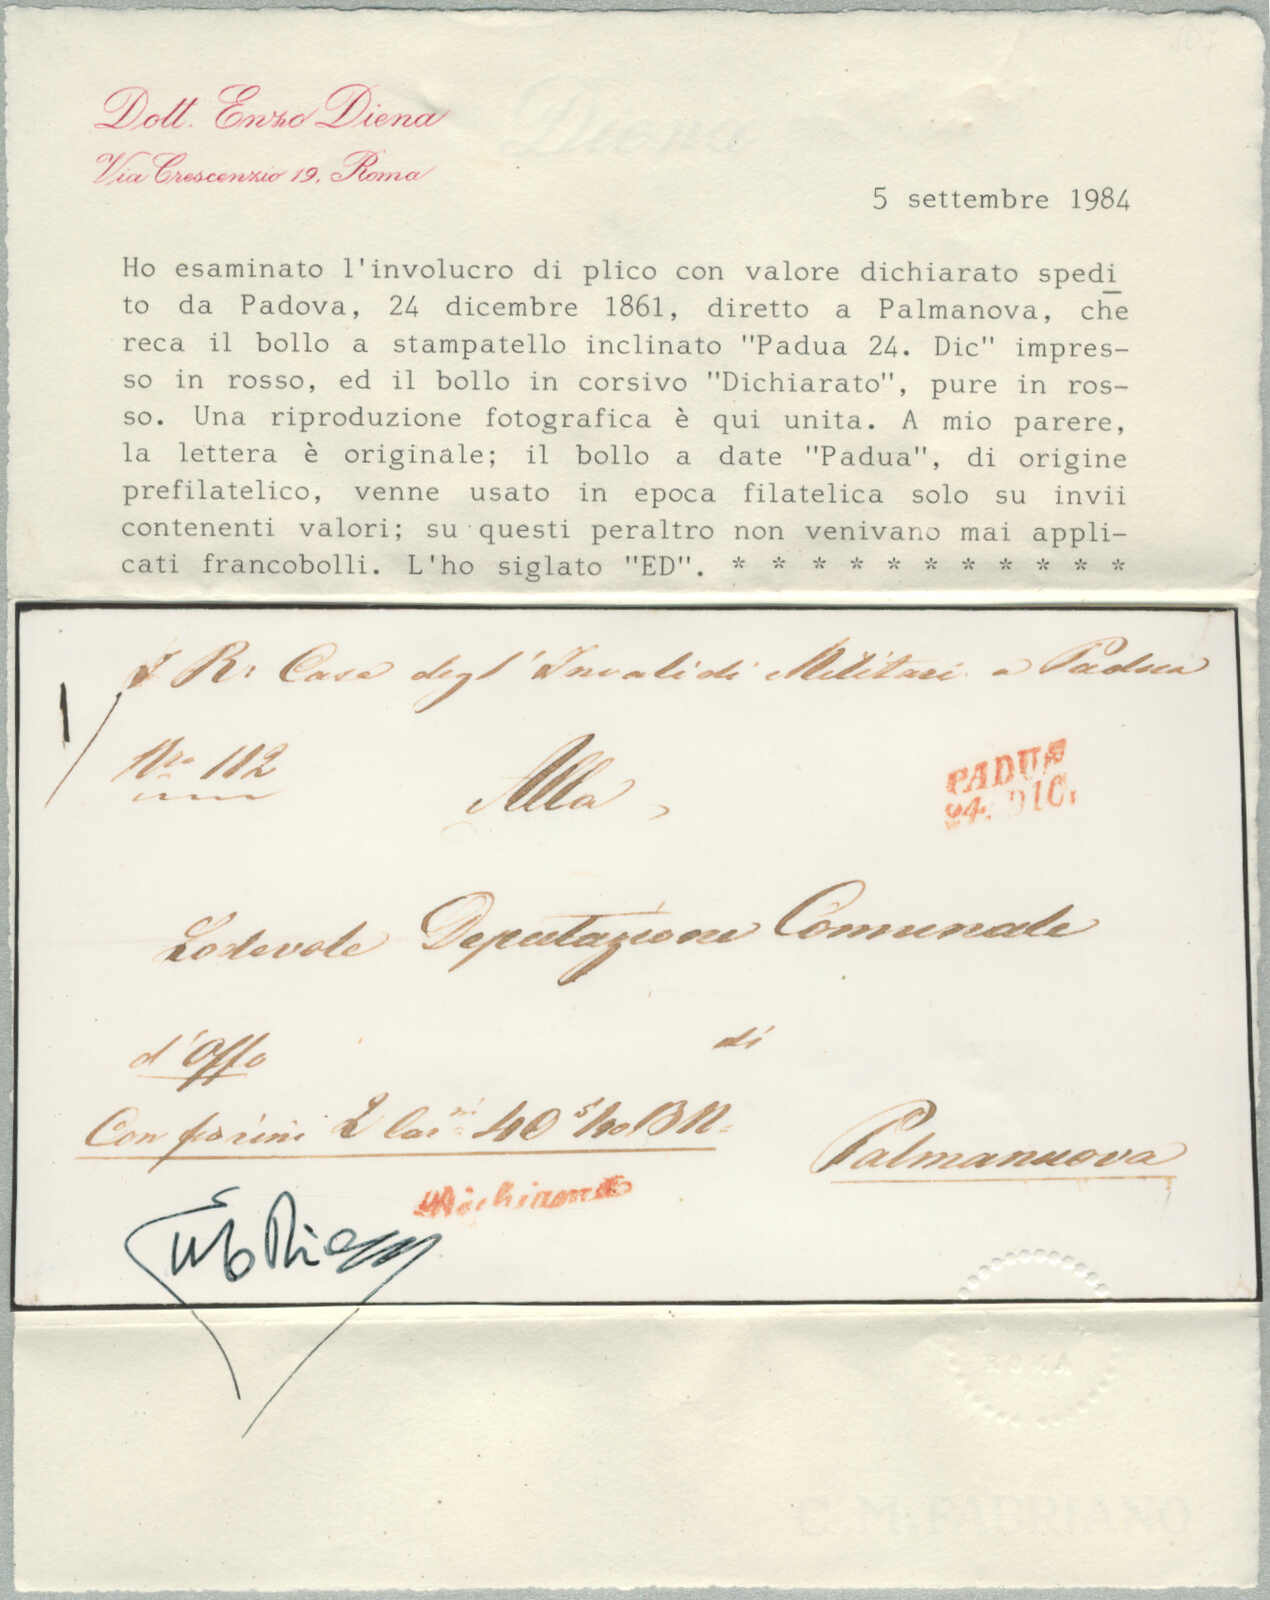 Dott. Enzo Diena
Via Crescenzio 19, Roma
5 settembre 1984
Ho esaminato l'involucro di plico con valore dichiarato spedi
to da Padova, 24 dicembre 1861, diretto a Palmanova, che
reca il bollo a stampatello inclinato "Padua 24. Dic" impres-
so in rosso, ed il bollo in corsivo "Dichiarato", pure in ros-
so. Una riproduzione fotografica è qui unita. A mio parere,
la lettera è originale; il bollo a date "Padua", di origine
prefilatelico, venne usato in epoca filatelica solo su invii
contenenti valori; su questi peraltro non venivano mai appli-
cati francobolli. L'ho siglato "ED". * * * * * * * * * * *
I R: Casa degl' Invalidi Militari a Padua
Nro 112
Alla
PADUA
24. DIC.
Lodevole Deputazione Comunale
d'Offo
di
Con fiorini 2 40 BN
Palmanuova
Dichiarato
Enzo Diena
ROMA
C. M. FABRIANO